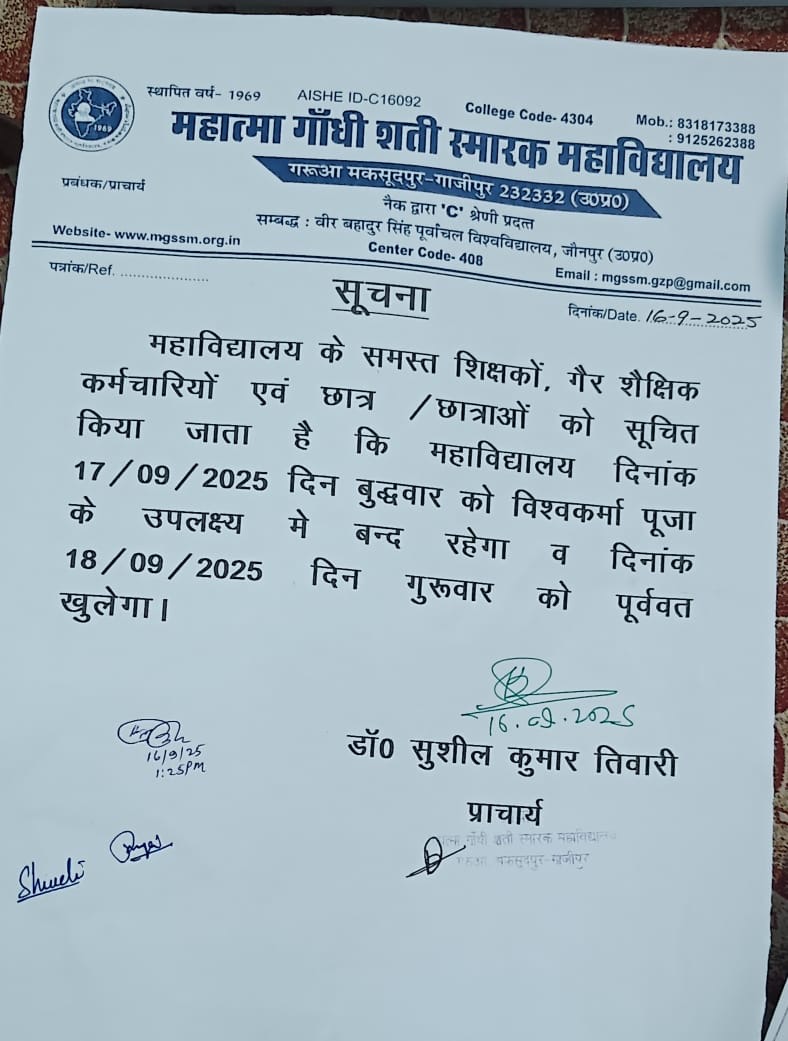 स्थापित वर्ष- 1969 AISHE ID-C16092 College Code- 4304 Mob.: 8318173388
: 9125262388
महात्मा गाँधी शती स्मारक महाविद्यालय
गरूआ मकसूदपुर-गाजीपुर 232332 (उ0प्र0)
प्रबंधक/प्राचार्य
नैक द्वारा 'C' श्रेणी प्रदत्त
सम्बद्ध : वीर बहादुर सिंह पूर्वांचल विश्वविद्यालय, जौनपुर (उ0प्र0)
Website- www.mgssm.org.in Center Code- 408 Email : mgssm.gzp@gmail.com
पत्रांक/Ref. ...................... दिनांक/Date. 16-9-2025
सूचना
महाविद्यालय के समस्त शिक्षकों, गैर शैक्षिक
कर्मचारियों एवं छात्र /छात्राओं को सूचित
किया जाता है कि महाविद्यालय दिनांक
17/09/2025 दिन बुद्धवार को विश्वकर्मा पूजा
के उपलक्ष्य मे बन्द रहेगा व दिनांक
18/09/2025 दिन गुरूवार को पूर्ववत
खुलेगा।
16.09.2025
डॉ0 सुशील कुमार तिवारी
प्राचार्य
गाँधी शती स्मारक महाविद्यालय
मकसूदपुर-गाजीपुर
16/9/25
1:25PM